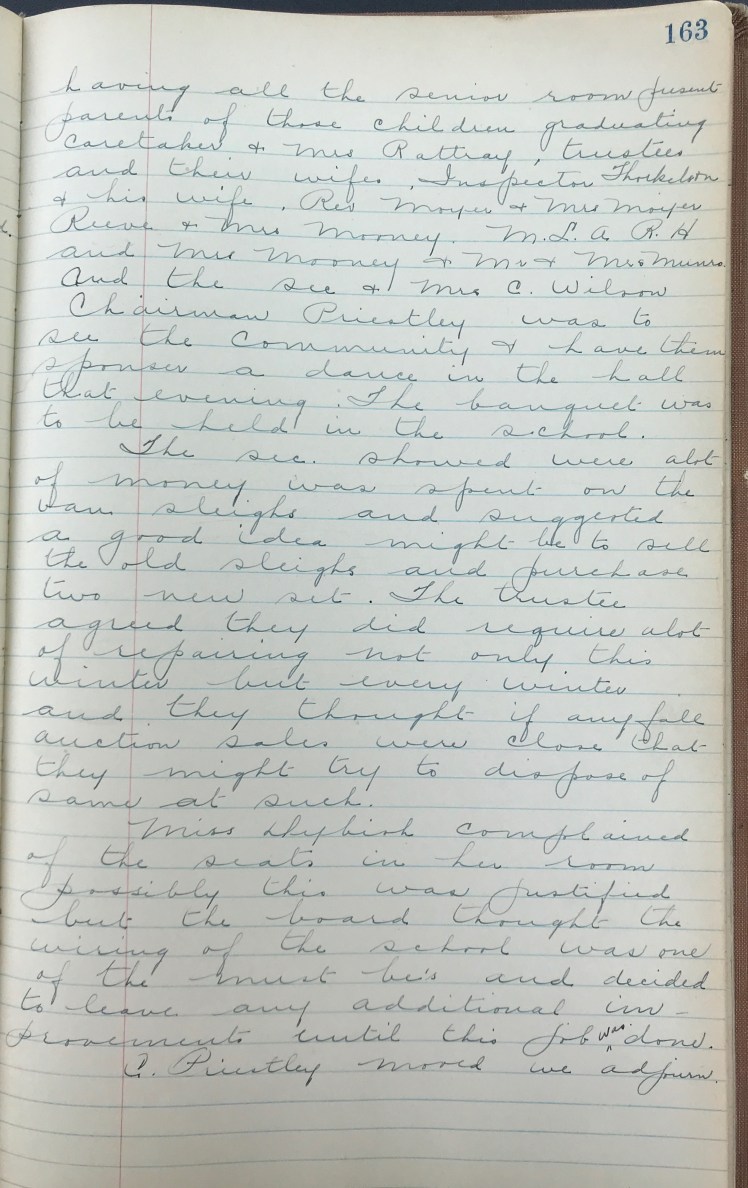 163
having all the senior room present
parents of those children graduating
caretaker & Mrs Rattray, trustees
and their wifes, Inspector Thorkelson
& his wife, Rev Moyer & Mrs Moyer
Reeve & Mrs Mooney. M.L.A. R.H
and Mrs Mooney & Mr & Mrs Munro.
and the sec & Mrs C. Wilson
Chairman Priestley was to
see the community & have them
sponser a dance in the hall
that evening. The banquet was
to be held in the school.
The sec. showed were alot
of money was spent on the
van sleighs and suggested
a good idea might be to sell
the old sleighs and purchase
two new set. The trustee
agreed they did require alot
of repairing not only this
winter but every winter
and they thought if any fall
auction sales were close that
they might try to dispose of
same at such.
Miss complained
of the seats in her room
possibly this was justified
but the board thought the
wiring of the school was one
of the must be's and decided
to leave any additional im-
provements until this job was done.
C. Priestley moved we adjourn.